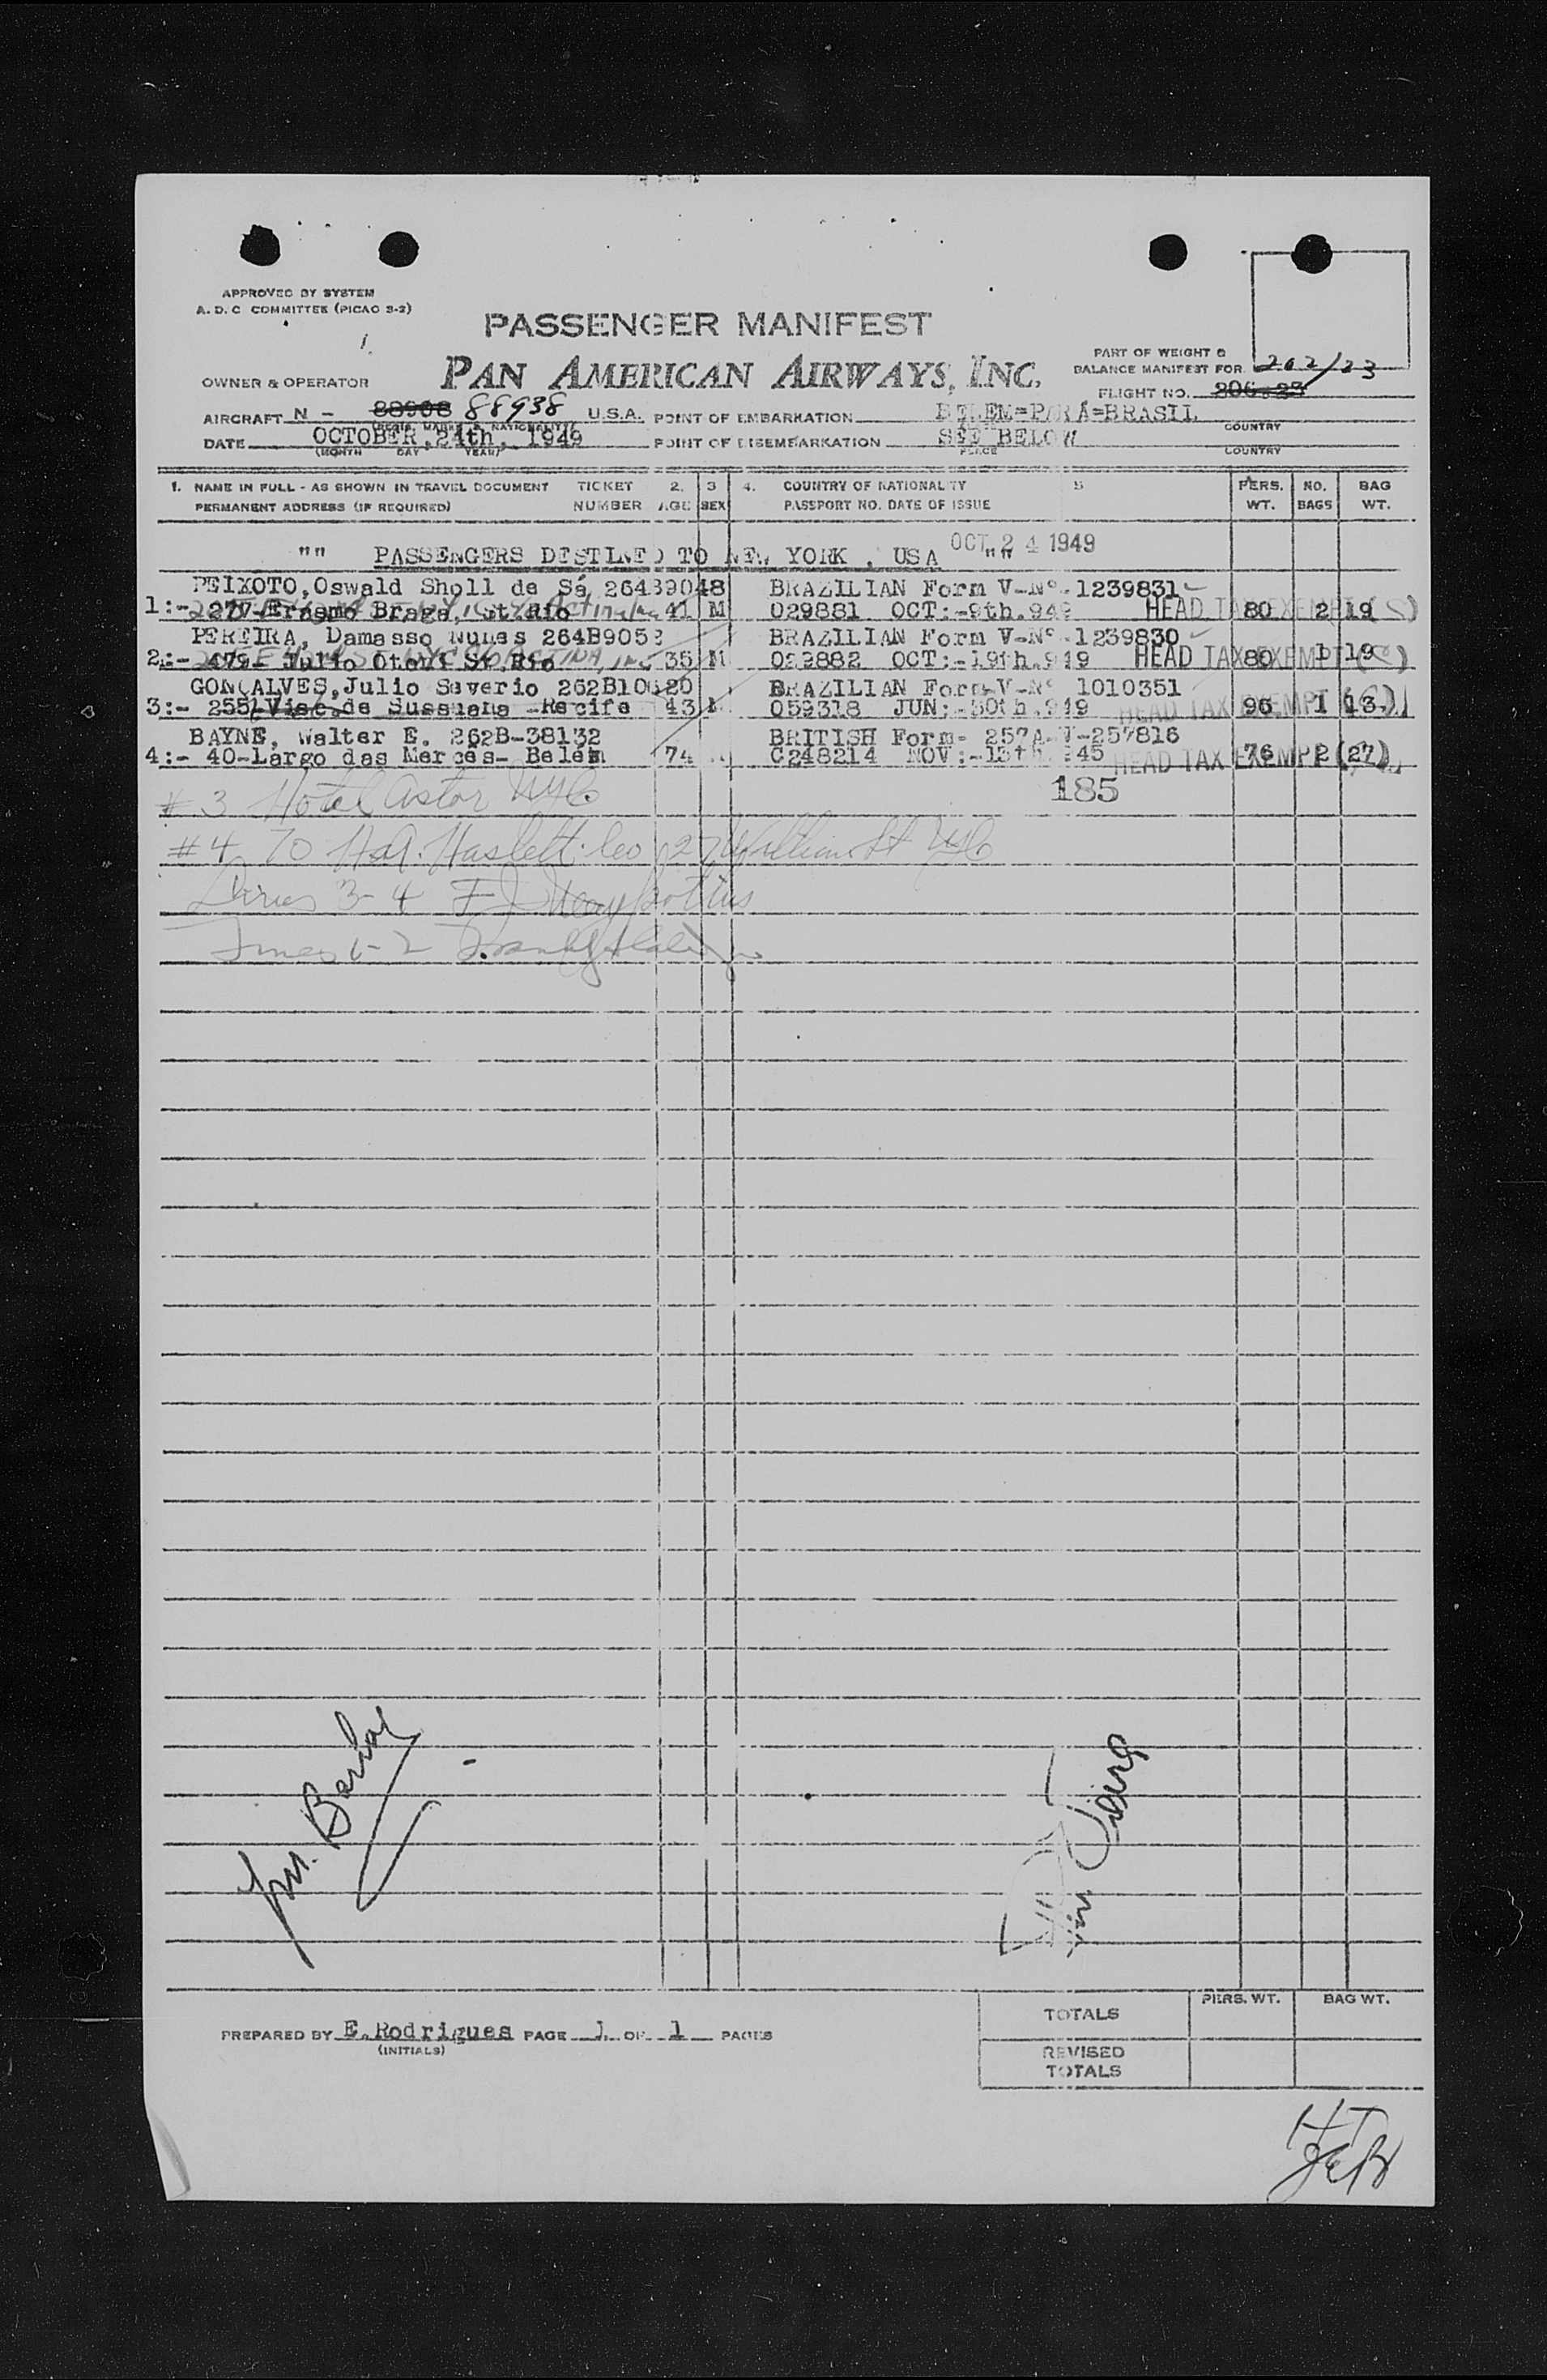 APPROVED BY SYSTEM
A. D. C COMMITTEE (PICAO S-2)
PASSENGER MANIFEST
PAN AMERICAN AIRWAYS, INC.
OWNER & OPERATOR
PART OF WEIGHT &
BALANCE MANIFEST FOR 202/23
FLIGHT NO. 806-23
AIRCRAFT N - 88908 88938 U.S.A. POINT OF EMBARKATION BELEM=PARÁ=BRASIL
COUNTRY
DATE OCTOBER, 24th, 1949 POINT OF DISEMBARKATION SEE BELOW
(MONTH DAY YEAR) PLACE COUNTRY
1. NAME IN FULL - AS SHOWN IN TRAVEL DOCUMENT TICKET 2. 3 4. COUNTRY OF NATIONALITY 5 PERS. NO. BAG
PERMANENT ADDRESS (IF REQUIRED) NUMBER AGE SEX PASSPORT NO. DATE OF ISSUE WT. BAGS WT.
"" PASSENGERS DESTINED TO NEW YORK , USA "" OCT 24 1949
PEIXOTO, Oswald Sholl de Sá 264B9048 BRAZILIAN Form V-Nº-1239831
1:- Erasmo Braga, St. Rio 41 M 029881 OCT:-9th.949 HEAD TAX EXEMPT 80 2 19
PEREIRA, Damasso Nunes BRAZILIAN Form V-Nº-1239830
2:- 479- Julio Otoni St Rio 35 M 029882 OCT:-19th.949 HEAD TAX EXEMPT 80 1 19
GONÇALVES, Julio Saverio BRAZILIAN Form-V-Nº 1010351
3:- 255 -Visc. de Suasuana -Recife 43 M 059318 JUN:-30th.949 HEAD TAX EXEMPT 96 1 (13)
BAYNE, Walter E. 262B-38132 BRITISH Form- 257A-V-257816
4:- 40-Largo das Mercês- Belém 74 C248214 NOV:-13th 945 HEAD TAX EXEMPT 76 2 (27)
185
# 3 Hotel Astor NYC
# 4 To H.A. Haslett Co 27 William St NYC
Lines 3-4
Lines 1-2
PREPARED BY E. Rodrigues PAGE 1 OF 1 PAGES
(INITIALS)
PERS. WT. BAG WT.
TOTALS
REVISED
TOTALS